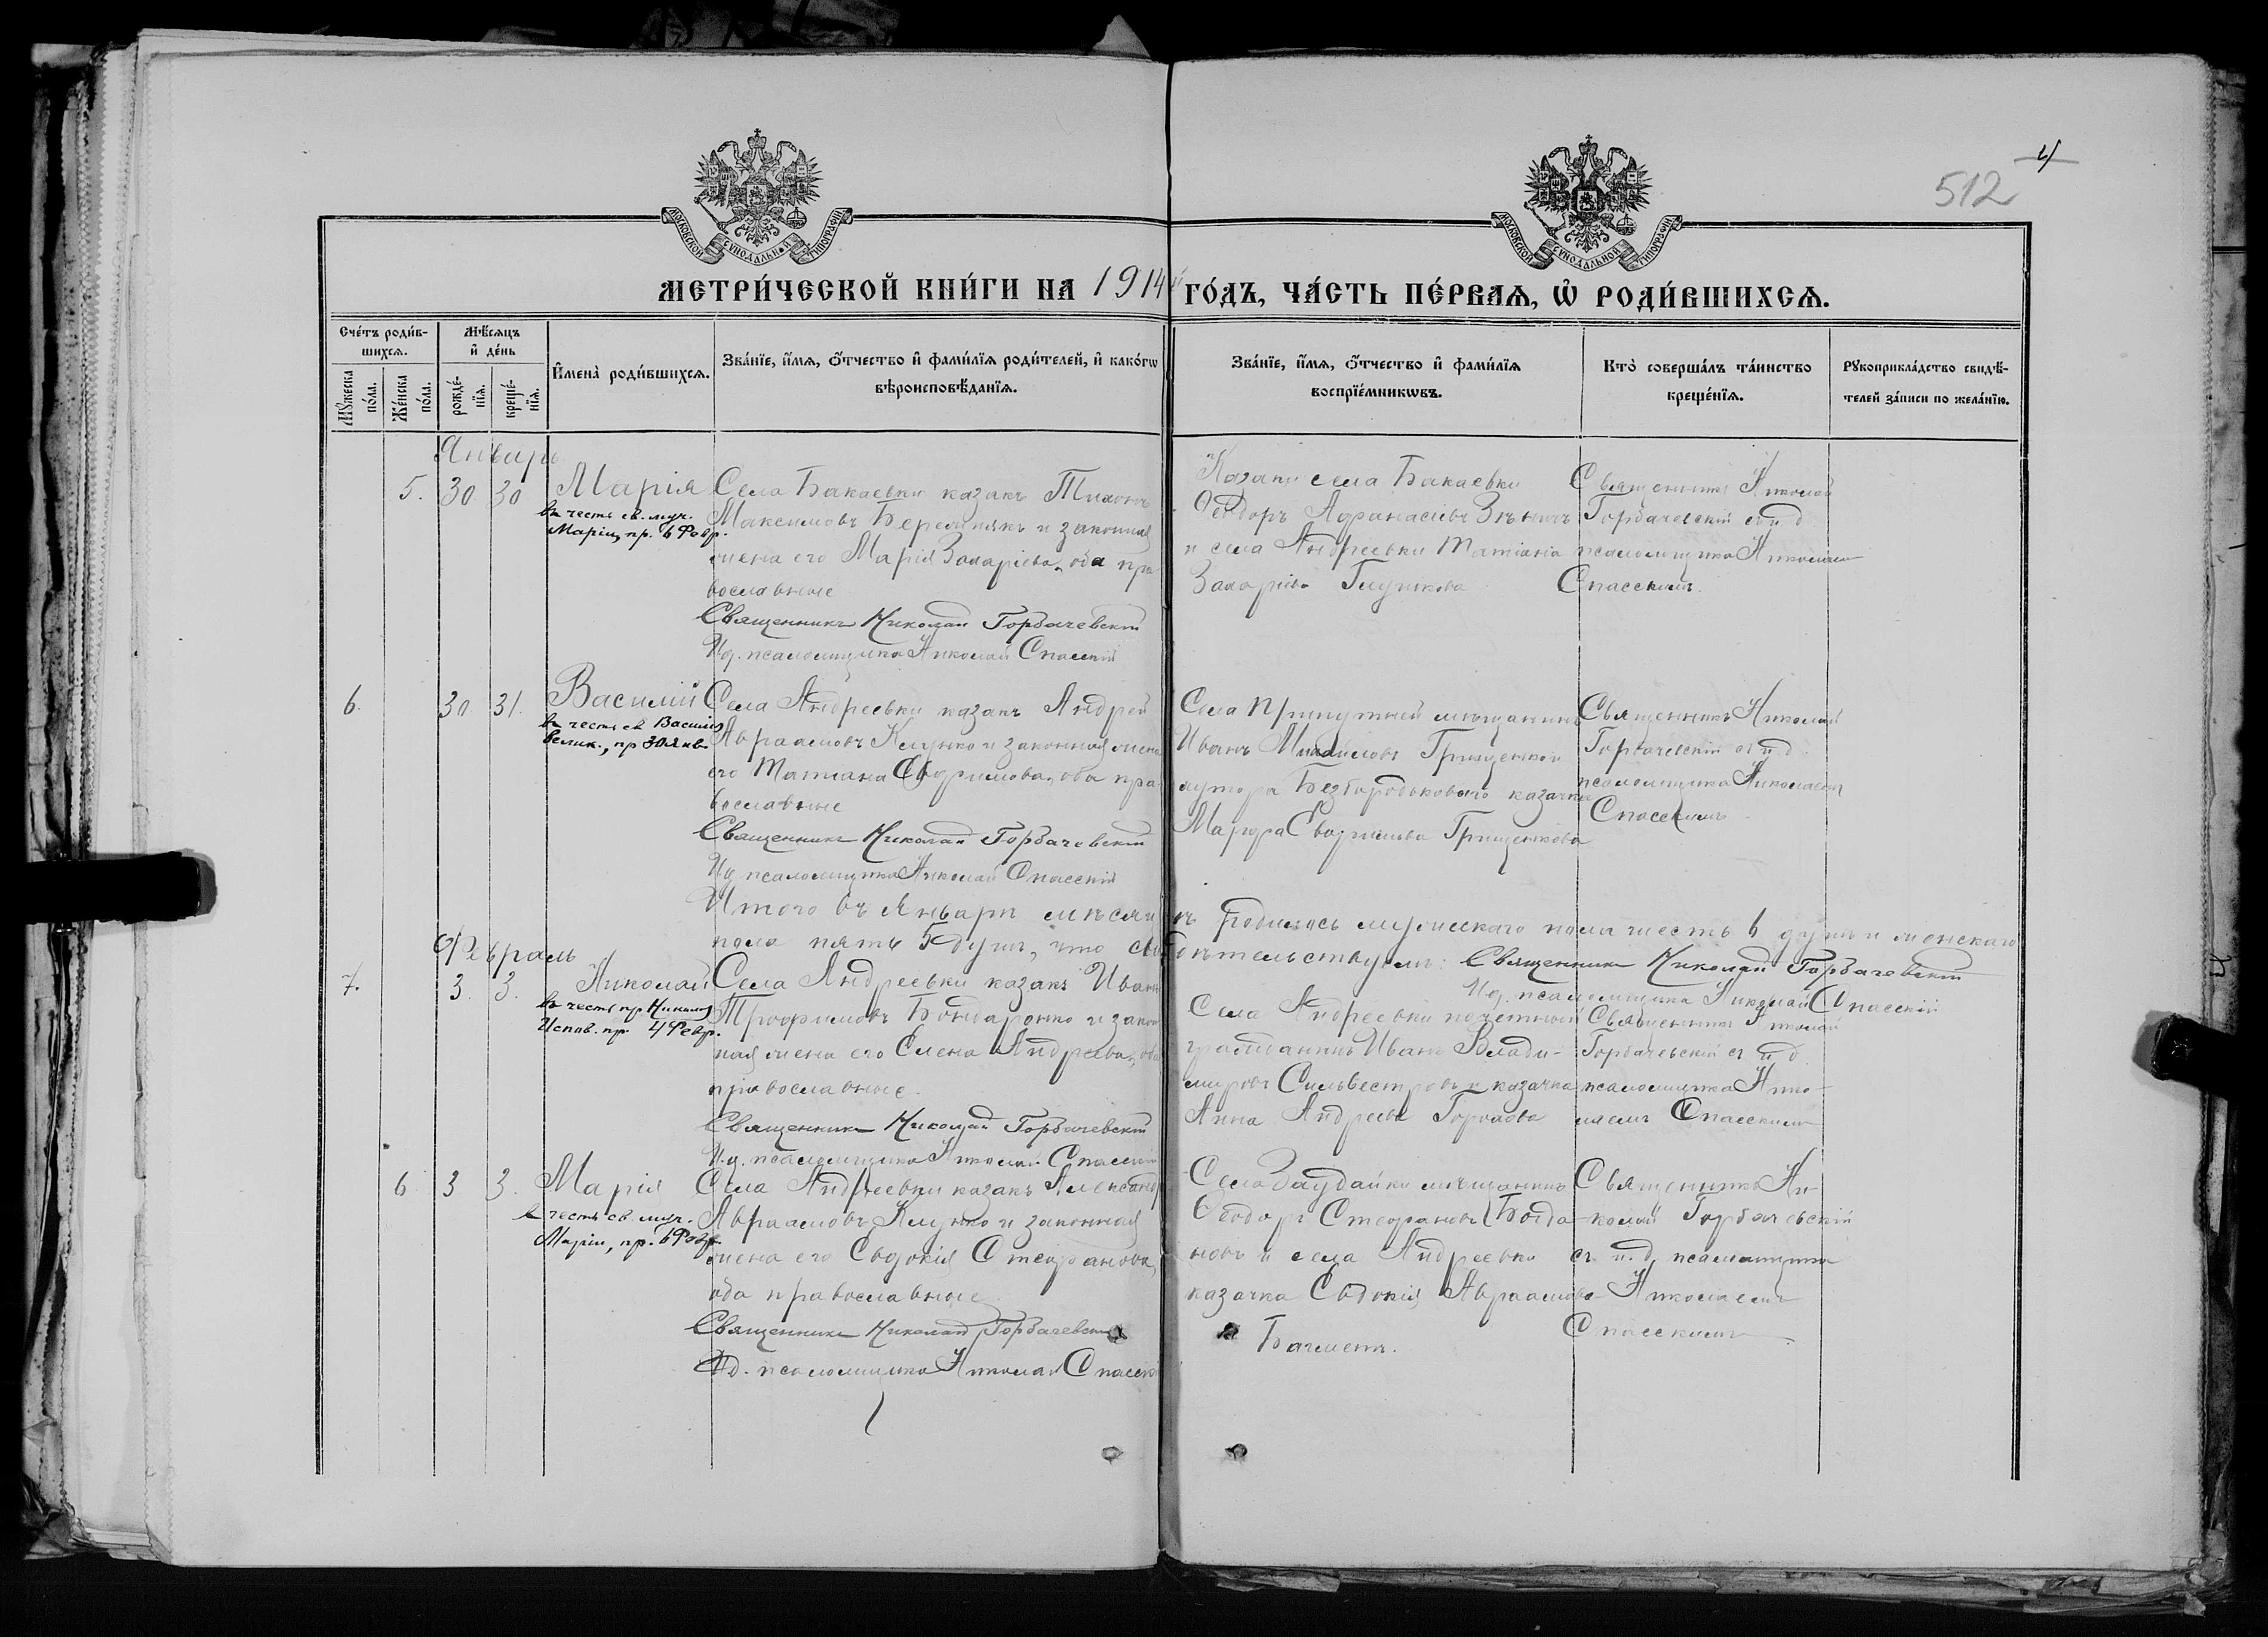 512
4
МОСКОВСКОЙ СѴНОДАЛЬНОЙ ТИПОГРАФІИ
МОСКОВСКОЙ СѴНОДАЛЬНОЙ ТИПОГРАФІИ
МЕТРИ́ЧЕСКОЙ КНИ́ГИ НА 1914 ГО́ДЪ, ЧА́СТЬ ПЕ́РВАѦ, Ѡ҆ РОДИ́ВШИХСѦ.
Сче́тъ роди́в-
шихсѧ.
Мѹ́жеска по́ла.
Же́нска по́ла.
Мѣ́сѧцъ
и҆ де́нь
рожде́-
нїѧ.
креще́-
нїѧ.
И҆мена̀ роди́вшихсѧ.
Зва́нїе, и҆́мѧ, ѻ҆́тчество и҆ фами́лїѧ роди́телей, и҆ како́гѡ
вѣроисповѣ́данїѧ.
Зва́нїе, и҆́мѧ, ѻ҆́тчество и҆ фами́лїѧ
воспрїе́мникѡвъ.
Кто̀ соверша́лъ та́инство
креще́нїѧ.
Рѹкоприкла́дство свидѣ́-
телей за́писи по жела́нїю.
Январь
5. 30 30 Марія
въ честь св. муч.
Маріи, пр. 6 Февр.
Села Бакаевки казакъ Тихонъ
Максимовъ и законная
жена его Марія Захаріева, оба пра
вославные
Священникъ Николай Горбачевскій
И.д. псаломщика Николай Спасскій
Казаки села Бакаевки
Ѳеодоръ Афанасіевъ
и села Андреевки Татіана
Захаріева
Священникъ Николай
Горбачевскій съ и д
псаломщика Николаемъ
Спасскимъ.
6. 30 31. Василій
въ честь св Василія
велик., пр 30 янв.
Села Андреевки казакъ Андрей
Авраамовъ и законная жена
его Татіана Евфимова, оба пра
вославные
Священникъ Николай Горбачевскій
И.д. псаломщика Николай Спасскій
Села Припутней мѣщанинъ
Иванъ Михайловъ Грищенко и
хутора Безбородьковаго казачка
Марфа Евфимова Грищенкова
Священникъ Николай
Горбачевскій съ и.д.
псаломщика Николаемъ
Спасскимъ
Итого въ Январѣ мѣсяцѣ родилось мужескаго пола шесть 6 душъ и женскаго
пола пять 5 душъ, что свидѣтельствуемъ: Священникъ Николай Горбачевскій
И.д. псаломщика Николай Спасскій
Февраль
7. 3. 3. Николай
въ честь пр. Николая
Испов. пр. 4 Февр.
Села Андреевки казакъ Иванъ
Трофимовъ Бондаренко и закон
ная жена его Елена Андреева, оба
православные.
Священникъ Николай Горбачевскій
И.д. псаломщика Николай Спасскій
Села Андреевки почетный
гражданинъ Иванъ Влади-
міровъ Сильвестровъ и казачка
Анна Андреева
Священникъ Николай
Горбачевскій съ и д.
псаломщика Нико-
лаемъ Спасскимъ
6 3 3. Марія
въ честь св. муч.
Маріи, пр. 6 Февр.
Села Андреевки казакъ Александръ
Авраамовъ и законная
жена его Евдокія Стефанова,
оба православные
Священникъ Николай Горбачевскій
И.д. псаломщика Николай Спасскій
Села мѣщанинъ
Ѳеодоръ Стефановъ Богда-
новъ и села Андреевки
казачка Евдокія Авраамова
Священникъ Ни-
колай Горбачевскій
съ и.д. псаломщика
Николаемъ
Спасскимъ